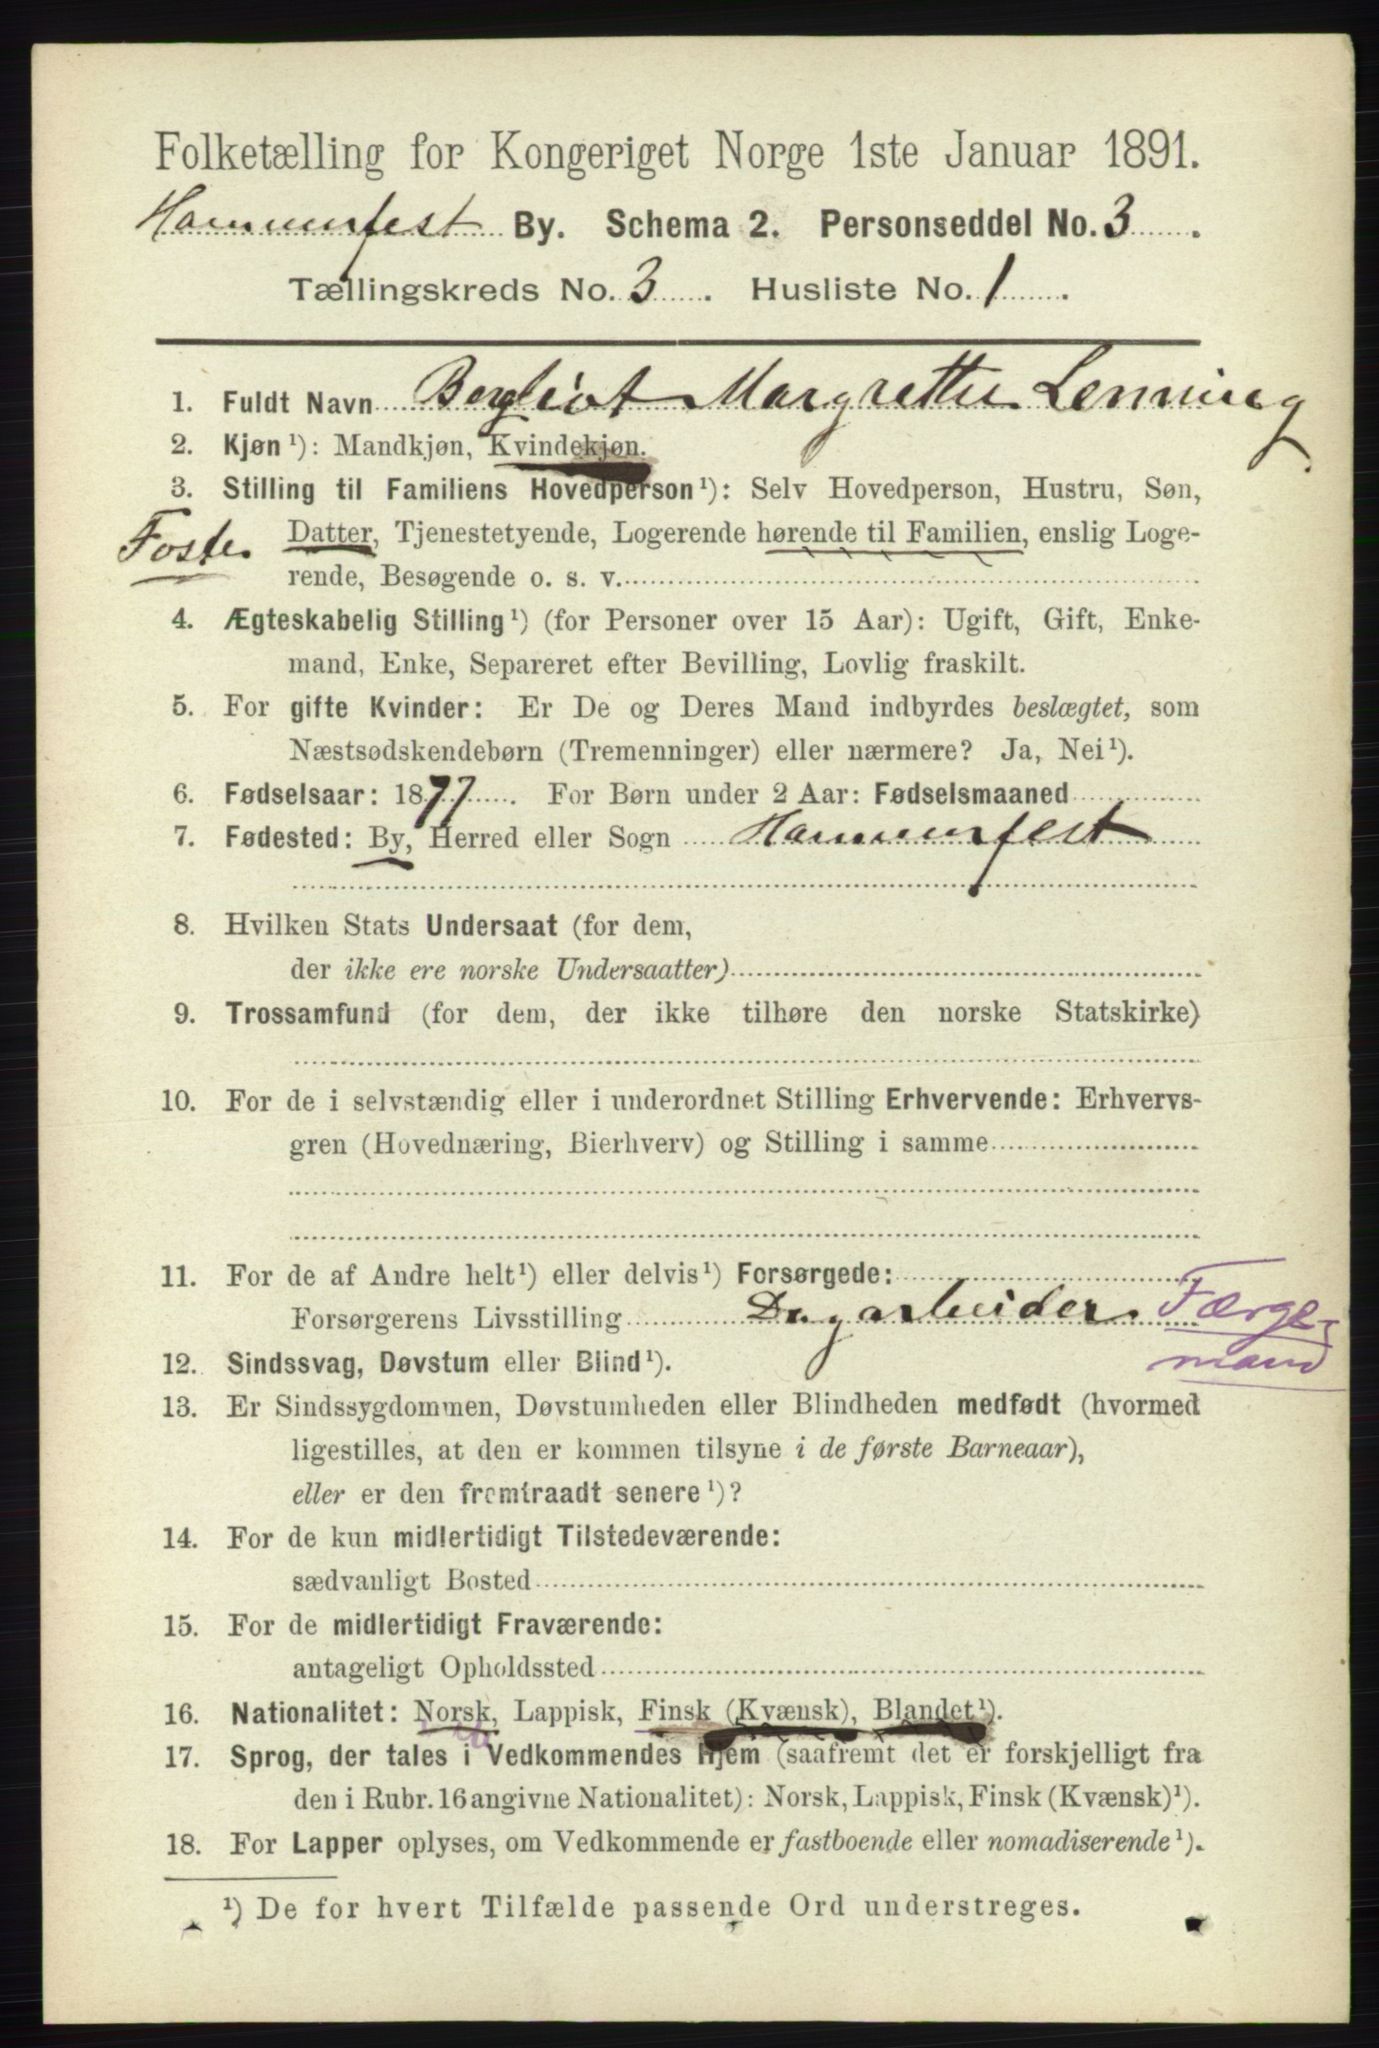 Folketælling for Kongeriget Norge 1ste Januar 1891.
Hammerfest By. Schema 2. Personseddel No. 3.
Tællingskreds No. 3. Husliste No. 1.
1. Fuldt Navn Bergliot Margrethe Lenning
2. Kjøn ¹): Mandkjøn, Kvindekjøn.
3. Stilling til Familiens Hovedperson ¹): Selv Hovedperson, Hustru, Søn,
Foster Datter, Tjenestetyende, Logerende hørende til Familien, enslig Loge-
rende, Besøgende o. s. v.
4. Ægteskabelig Stilling ¹) (for Personer over 15 Aar): Ugift, Gift, Enke-
mand, Enke, Separeret efter Bevilling, Lovlig fraskilt.
5. For gifte Kvinder: Er De og Deres Mand indbyrdes beslægtet, som
Næstsødskendebørn (Tremenninger) eller nærmere? Ja, Nei ¹).
6. Fødselsaar: 1877. For Børn under 2 Aar: Fødselsmaaned
7. Fødested: By, Herred eller Sogn Hammerfest
8. Hvilken Stats Undersaat (for dem,
der ikke ere norske Undersaatter)
9. Trossamfund (for dem, der ikke tilhøre den norske Statskirke)
10. For de i selvstændig eller i underordnet Stilling Erhvervende: Erhvervs-
gren (Hovednæring, Bierhverv) og Stilling i samme
11. For de af Andre helt ¹) eller delvis ¹) Forsørgede:
Forsørgerens Livsstilling Dagarbeider. Færge-
mand
12. Sindssvag, Døvstum eller Blind ¹).
13. Er Sindssygdommen, Døvstumheden eller Blindheden medfødt (hvormed
ligestilles, at den er kommen tilsyne i de første Barneaar),
eller er den fremtraadt senere ¹)?
14. For de kun midlertidigt Tilstedeværende:
sædvanligt Bosted
15. For de midlertidigt Fraværende:
antageligt Opholdssted
16. Nationalitet: Norsk, Lappisk, Finsk (Kvænsk), Blandet ¹).
17. Sprog, der tales i Vedkommendes Hjem (saafremt det er forskjelligt fra
den i Rubr. 16 angivne Nationalitet): Norsk, Lappisk, Finsk (Kvænsk) ¹).
18. For Lapper oplyses, om Vedkommende er fastboende eller nomadiserende ¹).
¹) De for hvert Tilfælde passende Ord understreges.